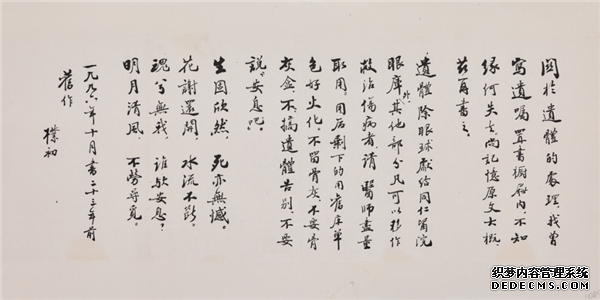 關於遺體的處理,我曾
寫遺囑置書櫥屜内,不知
緣何失去,尚記憶原文大概,
茲再書之。
遺體除眼球獻給同仁醫院
眼庫外,其他部分凡可以移作
救治傷病者,請醫師盡量
取用。用后剩下的用舊床單
包好火化。不留骨灰,不要骨
灰盒,不搞遺體告別,不要
說“安息吧”。
生固欣然,死亦無憾。
花謝還開,水流不斷。
魂兮無我,誰歟安息?
明月清風,不勞尋覓。
一九九六年十月書二十三年前
舊作 樸初
织梦内容管理系统
DEDECMS.COM